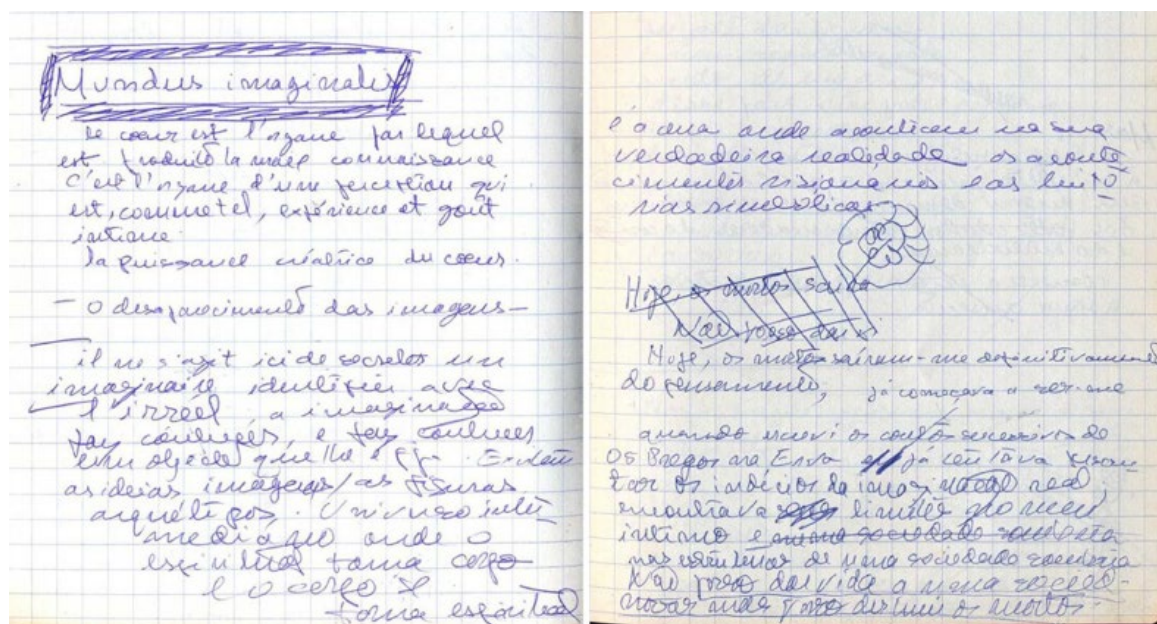 Mundus imaginalis
Le cœur est l'organe par lequel
est produite la connaissance
C'est l'organe d'une perception qui
est, comme tel, expérience et goût
intime.
la puissance créatrice du cœur.
— o desaparecimento das imagens —
il ne s'agit ici de un
imaginaire identifier avec
l'irréel, a imaginação
faz e faz conhecer
um objecto que lhe é Existem
as ideias imagens / as figuras
arquétipos. Universo inter
mediário onde o
espiritual toma corpo
e o corpo se
torna espiritual
é a cena onde acontecem na sua
verdadeira realidade os aconte
cimentos visionários e as histó
rias simbólicas
Hoje, os mortos
Não posso dar
Hoje, os mortos saíram-me definitivamente
do pensamento, já começava a ver-me
quando escrevi os contos sucessivos de
Os Pregos na Erva já tentava
os indícios da real,
encontrava limites no meu
íntimo e numa sociedade
nas de uma sociedade
Não posso dar vida a uma
mas posso os mortos.